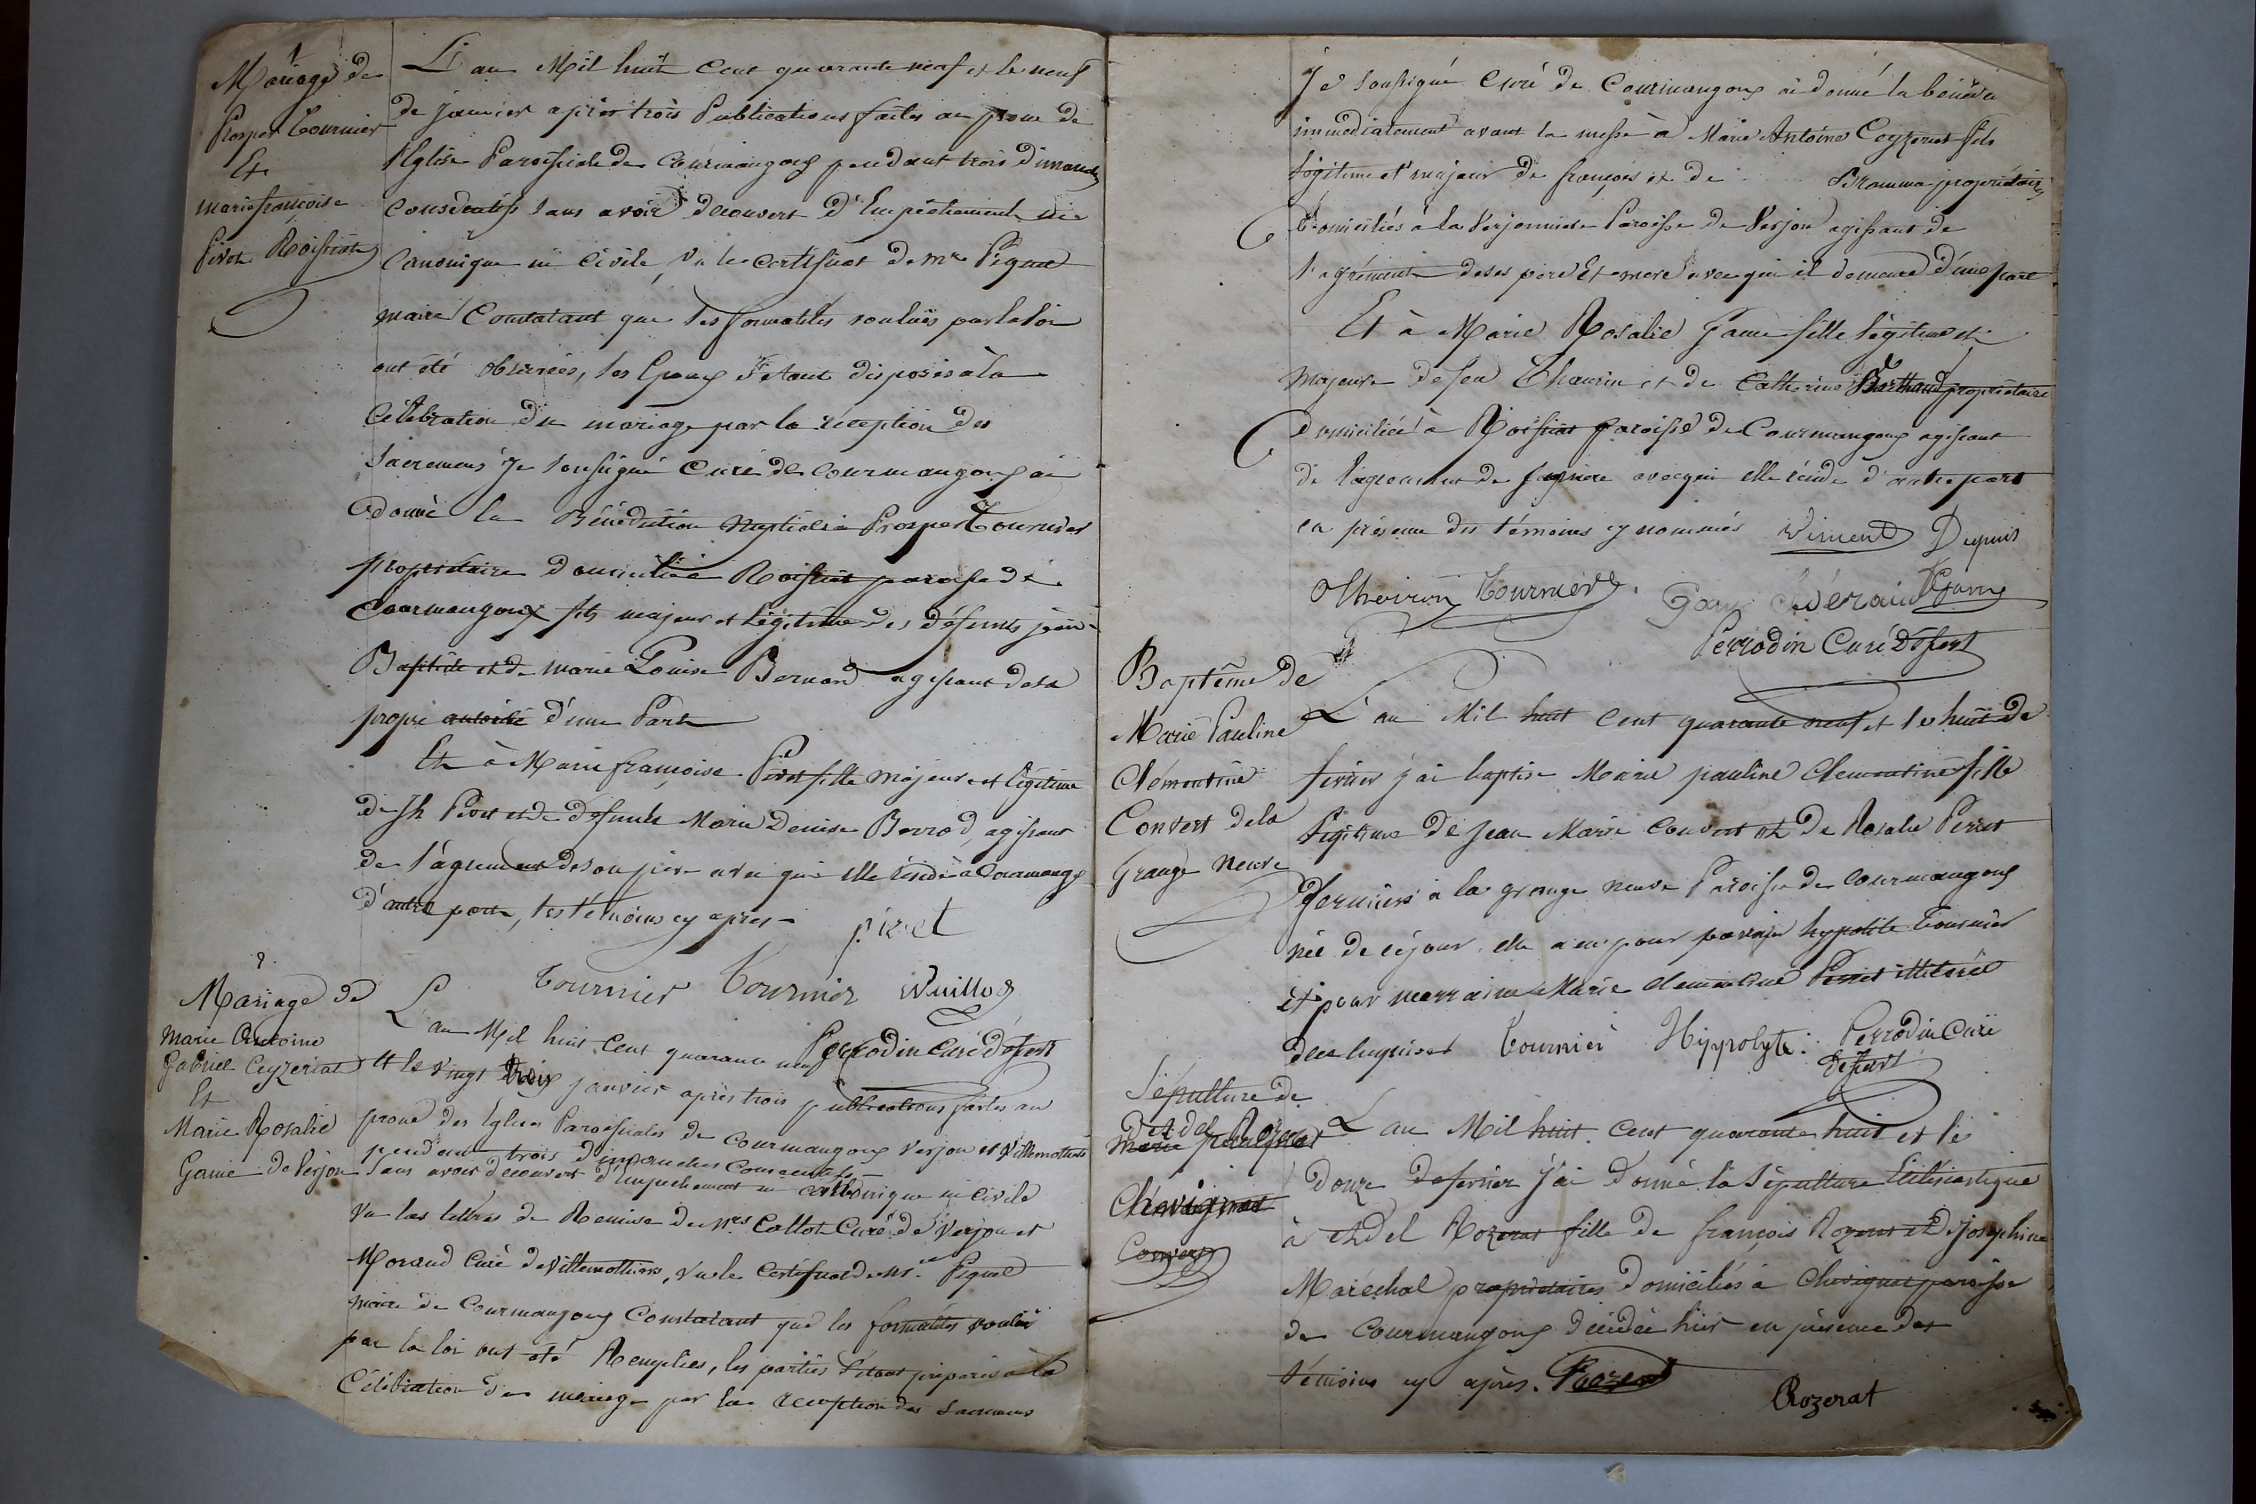 1
Mariage de
Prosper Tournier
Et
marie françoise
Pivet Roissiat
L'an Mil huit Cent quarante neuf et le neuf
de janvier après trois Publications faites au prone de
l'Eglise Paroissiale de Courmangoux pendant trois Dimanches
Consécutifs sans avoir découvert d'Empêchement ni
Canonique ni Civile, Vu le certificat de Mr Pignet
maire Constatant que les formalités voulues par la loi
ont été observées, les Epoux s'étant disposés à la
Célébration du mariage par la réception des
Sacremens Je soussigné Curé de Courmangoux ai
donné la Bénédiction Nuptiale à Prosper Tournier
propriétaire domicilié à Roissiat paroisse de
Courmangoux fils majeur et légitime des défunts jean
Baptiste et de marie Louise Bernard agissant de sa
propre autorité d'une Part
Et à Marie françoise Pivet fille majeure et légitime
de Jh Pivet et de défunte Marie Denise Berrod, agissant
de l'agrément de son père avec qui elle réside à Courmangx
d'autre part, les témoins cy apres
pivet
Tournier Tournier Vuillod
Perrodin Curé Dfsert
2
Mariage de
Marie Antoine
Gabriel Ceyzeriat
Et
Marie Rosalie
Game de Verjon
L'an Mil huit Cent quarante neuf
et le vingt trois janvier après trois publications faites au
prone des Eglises Paroissiales de Courmangoux Verjon et Villemotier
pendant trois dimanches Consécutifs
sans avoir découvert d'Empêchement ni canonique ni civile
Vu les lettres de Remise de Mrs Collot Curé de Verjon et
Morand Curé de Villemottiers, Vu le certificat de Mr Pignet
maire de Courmangoux Constatant que les formalités voulues
par la loi ont été Remplies, les parties s'étant préparées à la
Célébration du mariage par la réception des Sacremens
Je soussigné Curé de Courmangoux ai donné la bénédon
immédiatement avant la messe à Marie Antoine Ceyzeriat fils
légitime et majeur de françois et de propriétaires
domiciliés à la Verjonniere Paroisse de Verjon agissant de
l'agrément de ses père Et mere avec qui il demeure d'une part
Et à Marie Rosalie Game fille légitime et
majeure de feu Thaurin et de Catherine Barthaud propriétaire
domiciliée à Roissiat paroisse de Courmangoux agissant
de l'agrément de sa mère avec qui elle réside d'autre part
en présence des témoins cy nommés Vincent Dupuis
Tournier Game Game
Perrodin Curé Dfsert
Baptême de
Marie Pauline
Clémentine
Convert de la
Grange Neuve
L'an Mil huit Cent quarante neuf et le huit de
fevrier j'ai baptisé Marie pauline Clementine fille
légitime de Jean Marie Convert et de Rosalie Perret
fermiers à la grange neuve Paroisse de Courmangoux
née de ce jour. elle a eu pour parain hypolite Tournier
et pour marraine Marie clementine Perret illitérée
Tournier Hippolyte. Perrodin Curé
Dfsert
Sépulture de
Adel Rozerat
Chevignat
L'an Mil huit Cent quarante huit et le
douze de fevrier j'ai donné la Sépulture Ecclésiastique
à Adel Rozerat fille de françois Rozerat et de Josephine
Maréchal propriétaires domiciliés à Chevignat paroisse
de Courmangoux décédée hier en présence des
témoins cy après. Rozerat
Rozerat